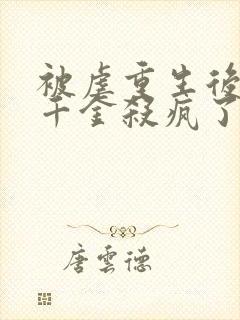 被虐重生後
千金殺瘋了
唐雲德